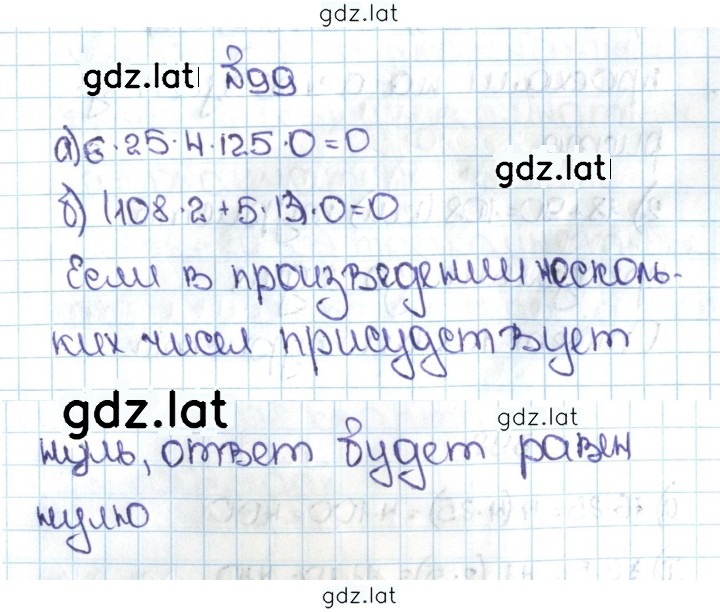 gdz.lat
gdz.lat №99
а) 6·25·4·125·0=0
gdz.lat
б) (108·2+5·13)·0=0
Если в произведении несколь-
ких чисел присудствует
gdz.lat
gdz.lat
нуль, ответ будет равен
нулю
gdz.lat